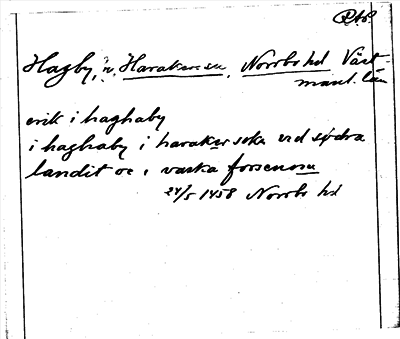 Hagby, n. Harakers sn, Norrbo hd Väst-
manl. län
erik i haghaby
i haghaby i harakers sokn vid södra
landit oc i vaska forsenom
24/5 1458 Norrbo hd